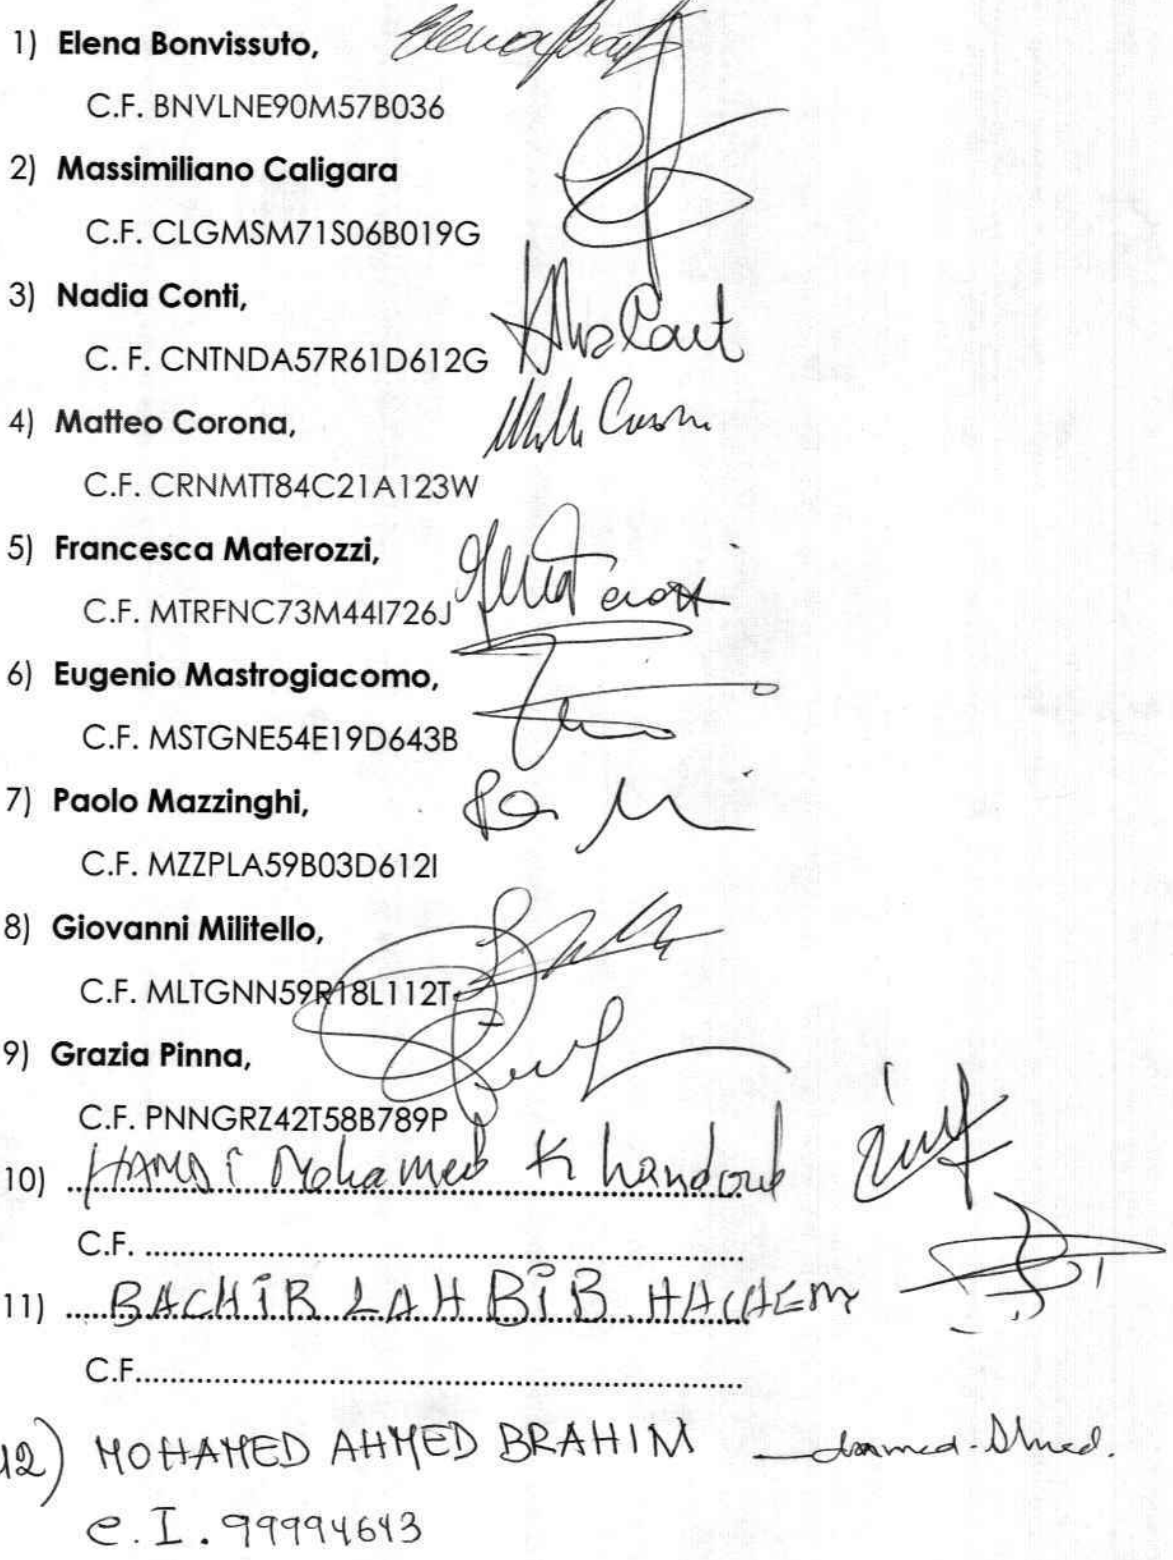 1) Elena Bonvissuto,
C.F. BNVLNE90M57B036
2) Massimiliano Caligara
C.F. CLGMSM71S06B019G
3) Nadia Conti,
C. F. CNTNDA57R61D612G
4) Matteo Corona,
C.F. CRNMTT84C21A123W
5) Francesca Materozzi,
C.F. MTRFNC73M44I726J
6) Eugenio Mastrogiacomo,
C.F. MSTGNE54E19D643B
7) Paolo Mazzinghi,
C.F. MZZPLA59B03D612I
8) Giovanni Militello,
C.F. MLTGNN59R18L112T
9) Grazia Pinna,
C.F. PNNGRZ42T58B789P
10) Mohamed Khandoud
C.F. ..........
11) BACHIR LAHBIB
C.F...........
12) MOHAMED AHMED BRAHIM
C.I. 99994643